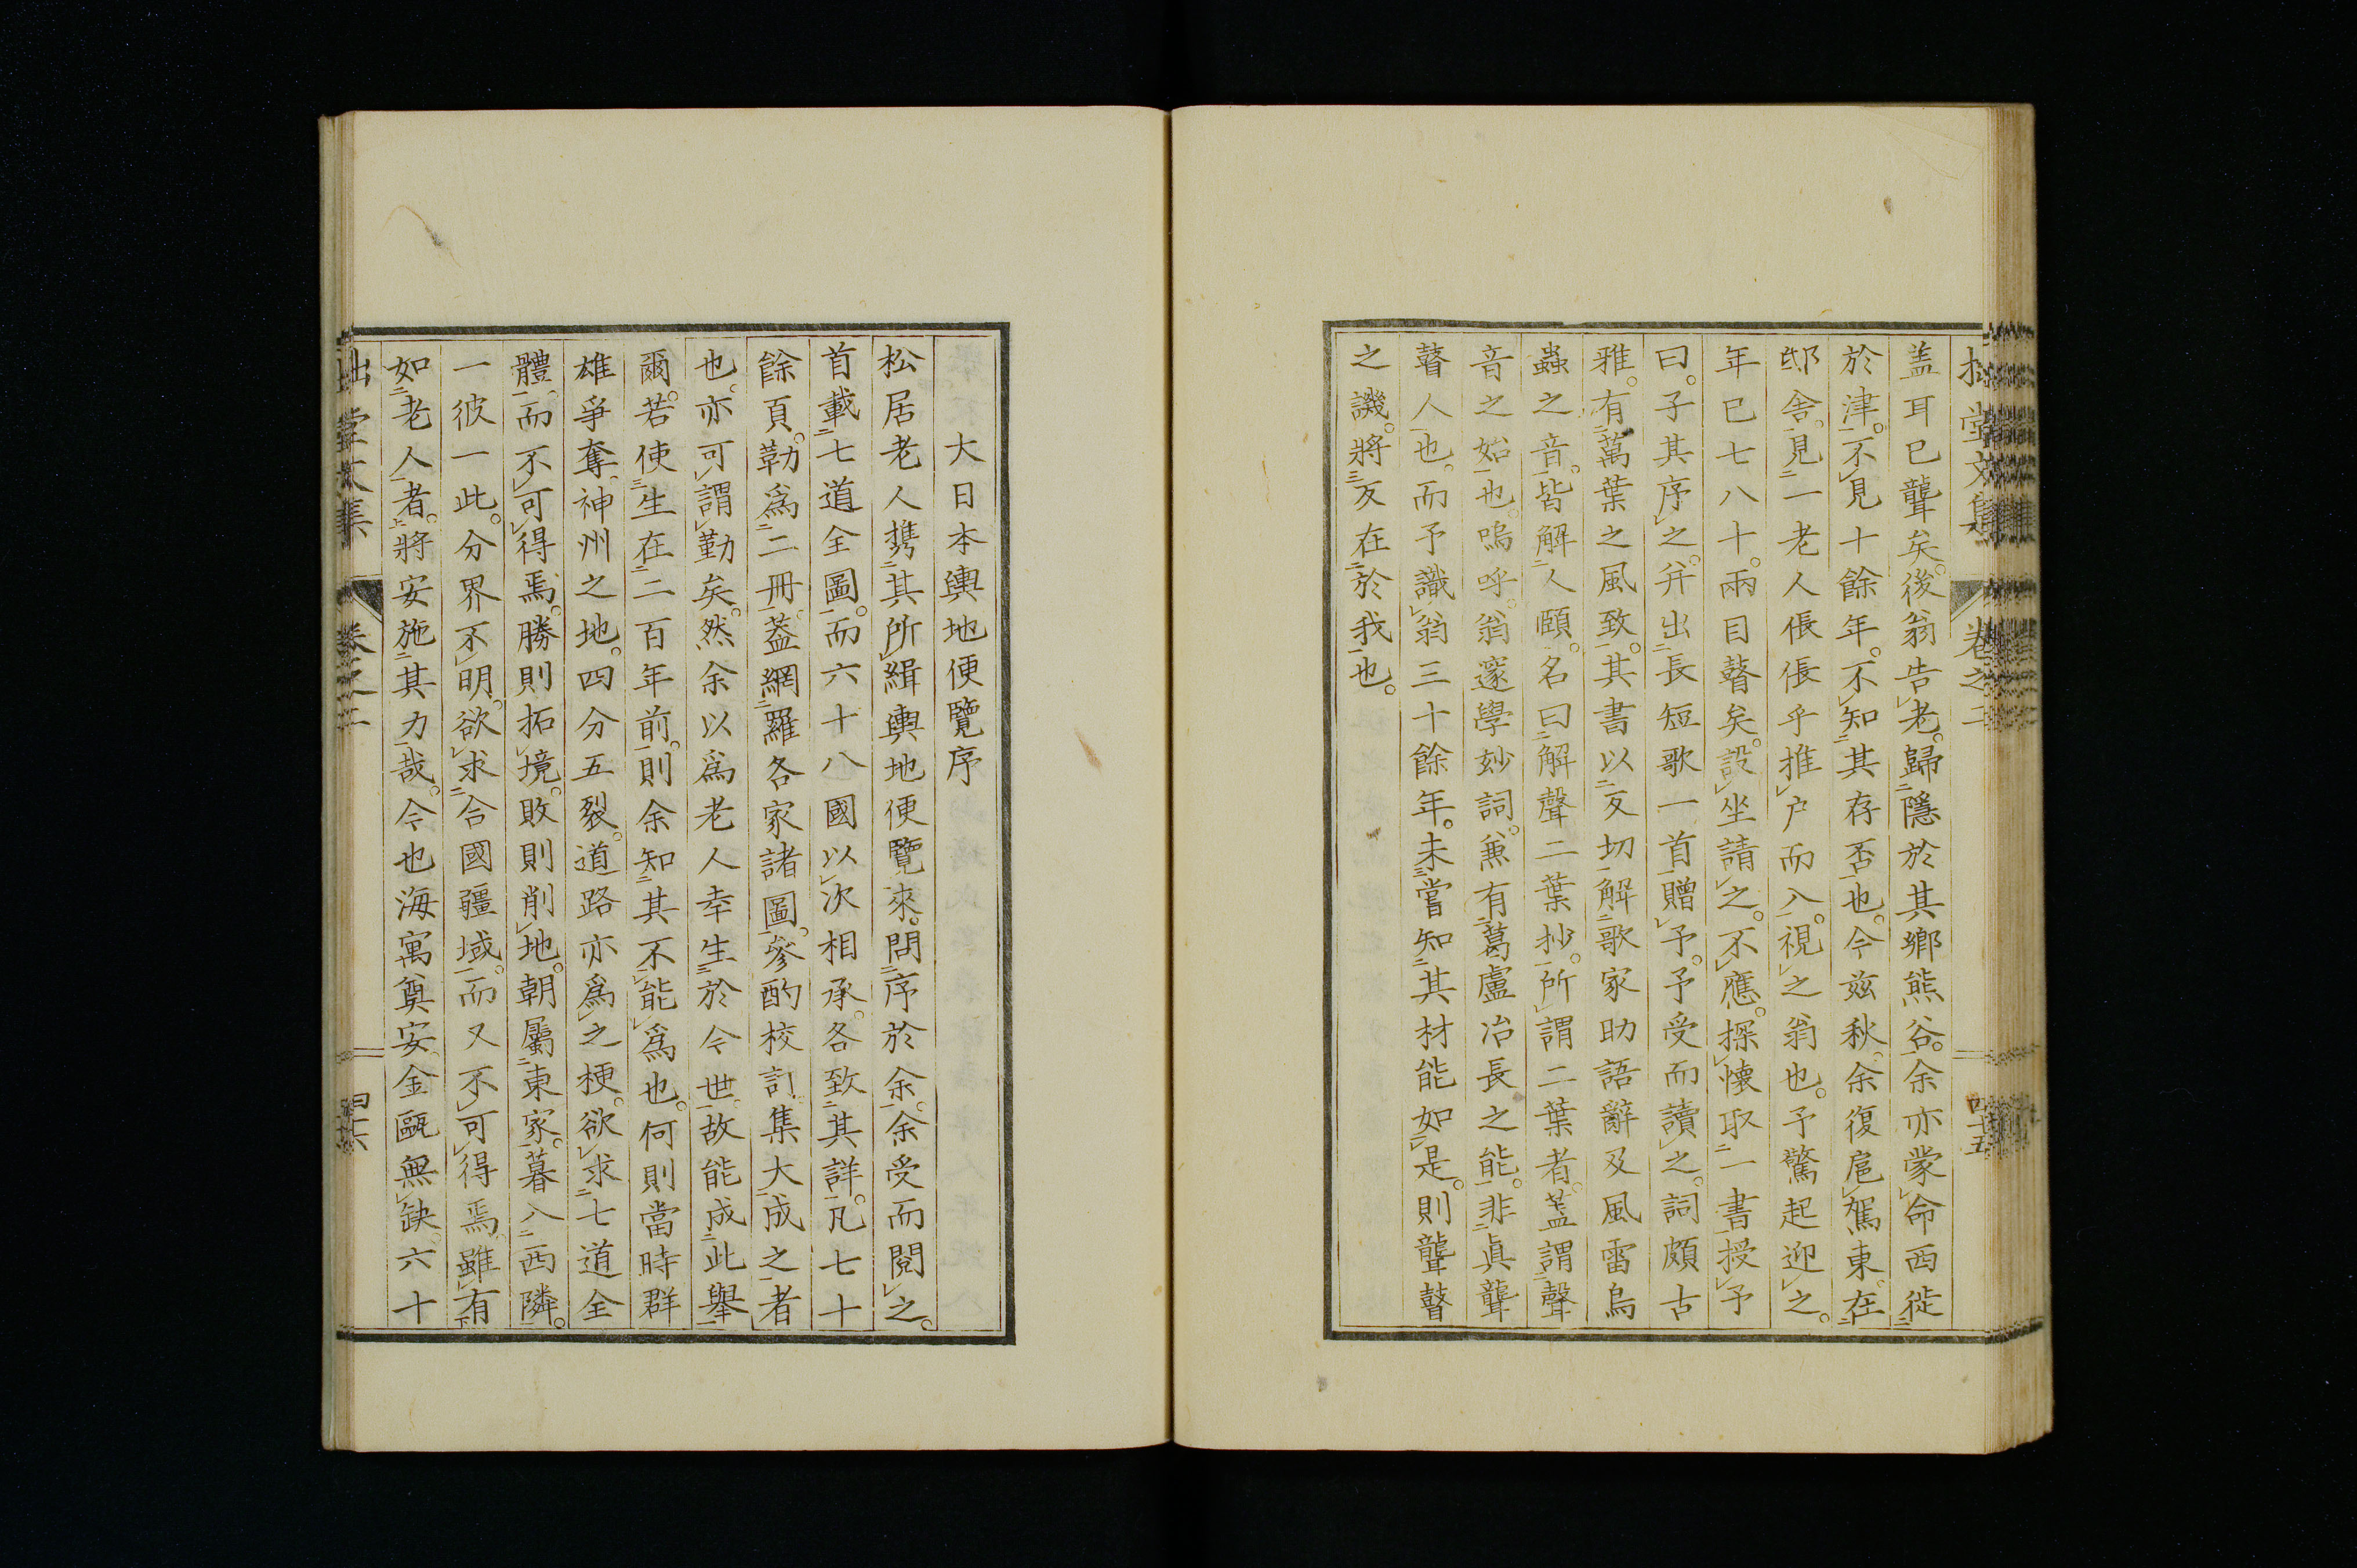 拙堂文集 卷之二 四十五
盖耳已聾矣。後翁告老。歸隱於其鄉熊谷。余亦蒙命西徙
於津。不見十餘年。不知其存否也。今玆秋。余復扈駕東。在
邸舍。見一老人倀倀乎推户而入。視之翁也。予驚起迎之。
年已七八十。兩目瞽矣。設坐請之。不應。探懷取一書授予
曰。子其序之。并出長短歌一首贈予。予受而讀之。詞頗古
雅。有萬葉之風致。其書以反切解歌家助語辭及風雷鳥
蟲之音。皆解人頤。名曰解聲二葉抄。所謂二葉者。盖謂聲
音之始也。嗚呼。翁邃學玅詞。兼有葛盧冶長之能。非眞聾
瞽人也。而予識翁三十餘年。未嘗知其材能如是。則聾瞽
之譏。將反在於我也。
大日本輿地便覽序
松居老人携其所緝輿地便覽來。問序於余。余受而閱之。
首載七道全圖。而六十八國以次相承。各致其詳。凡七十
餘頁。勒爲二冊。葢網羅各家諸圖。參酌校訂。集大成之者
也。亦可謂勤矣。然余以爲老人幸生於今世。故能成此舉
爾。若使生在二百年前。則余知其不能爲也。何則當時群
雄爭奪。神州之地。四分五裂。道路亦爲之梗。欲求七道全
體。而不可得焉。勝則拓境。敗則削地。朝屬東家。暮入西隣。
一彼一此。分界不明。欲求合國疆域。而又不可得焉。雖有
如老人者。將安施其力哉。今也海寓奠安。金甌無缺。六十
拙堂文集 卷之二 四十六